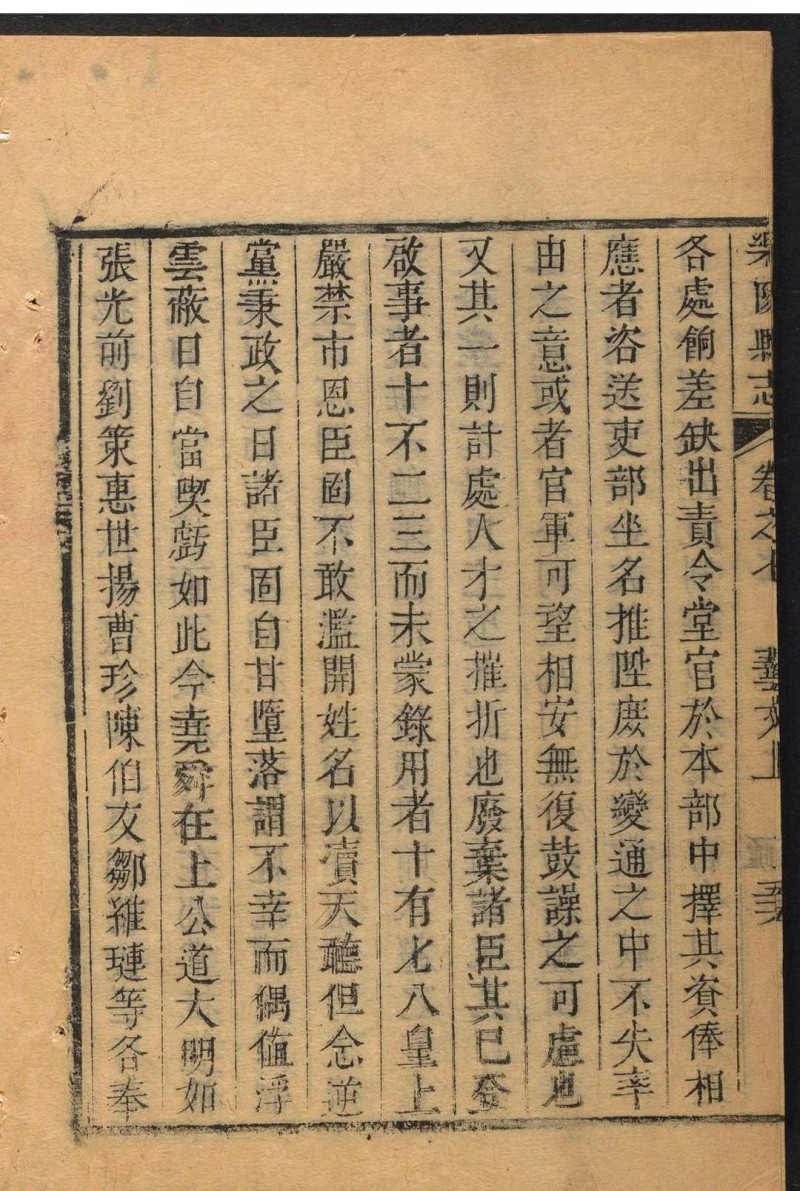 樂陽縣志 卷之七 藝文上
各處餉差缺出責令堂官於本部中擇其資俸相
應者咨送吏部坐名推陞庶於變通之中不失率
由之意或者官軍可望相安無復鼓譟之可慮也
又其一則計處人才之摧折也廢棄諸臣其已登
啟事者十不二三而未蒙錄用者十有七八皇上
嚴禁市恩臣固不敢濫開姓名以凟天聽但念逆
黨秉政之日諸臣固自甘墮落謂不幸而偶值浮
雲蔽日自當喫虧如此今堯舜在上公道大明如
張光前劉策惠世揚曹珍陳伯友鄒維璉等各奉